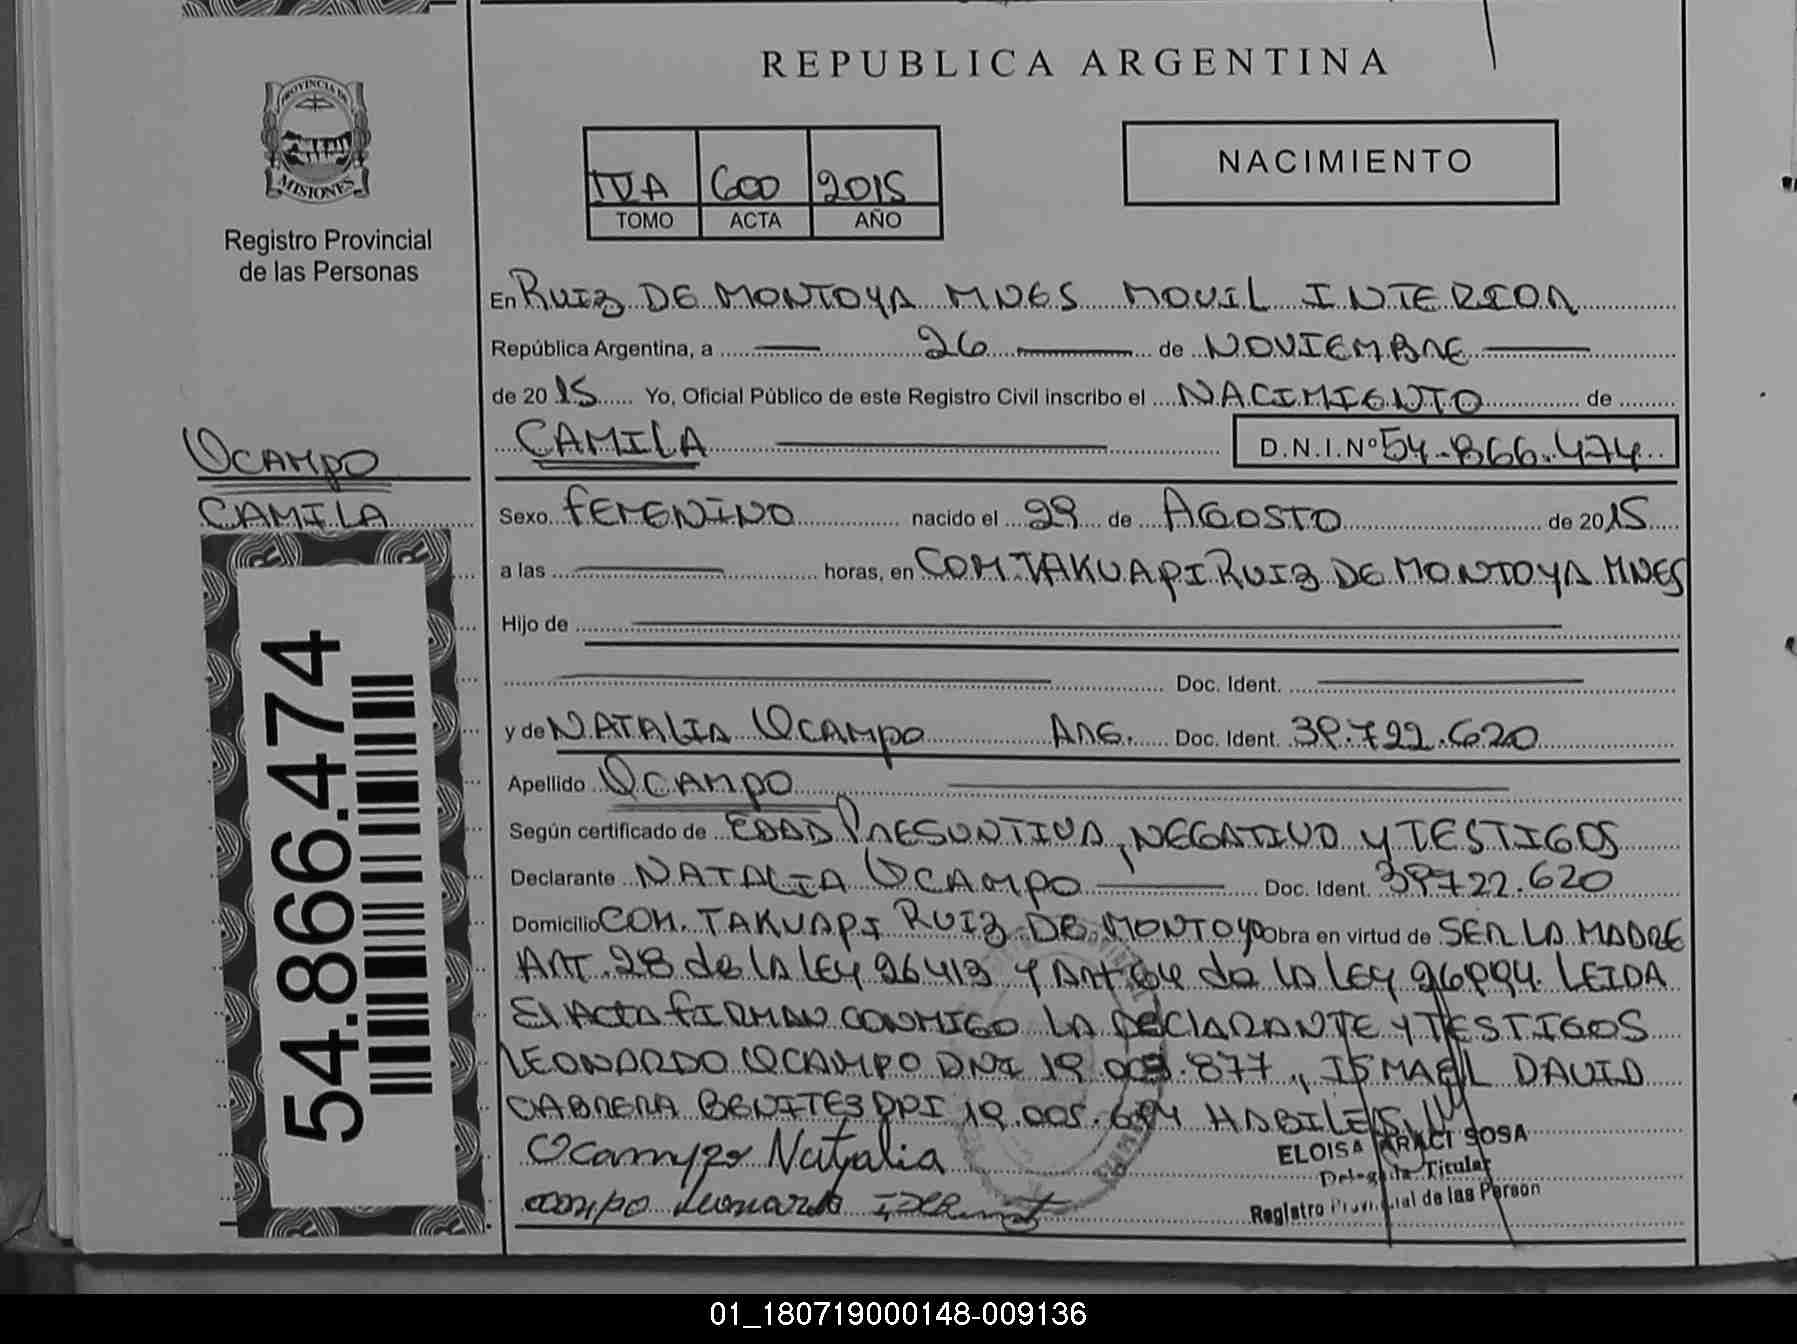 REPUBLICA ARGENTINA
PROVINCIA DE
MISIONES
Registro Provincial
de las Personas
IVA 600 2015
TOMO ACTA AÑO
NACIMIENTO
En RUIZ DE MONTOYA MNES MOVIL INTERIOR
República Argentina, a 26 de NOVIEMBRE
de 2015 Yo, Oficial Público de este Registro Civil inscribo el NACIMIENTO de
CAMILA D.N.I.Nº 54.866.474
OCAMPO
CAMILA
54.866.474
Sexo FEMENINO nacido el 29 de AGOSTO de 2015
a las horas, en COM. TAKUAPI RUIZ DE MONTOYA MNES
Hijo de
Doc. Ident.
y de NATALIA OCAMPO ARG. Doc. Ident. 39.722.620
Apellido OCAMPO
Según certificado de EDAD PRESUNTIVA, NEGATIVO Y TESTIGOS
Declarante NATALIA OCAMPO Doc. Ident. 39722.620
Domicilio COM. TAKUAPI RUIZ DE MONTOYA Obra en virtud de SER LA MADRE
ART. 28 de LA LEY 26413 Y ART 64 de LA LEY 26994. LEIDA
El ACTA FIRMAN CONMIGO LA DECLARANTE Y TESTIGOS
LEONARDO OCAMPO DNI 19.009.877, ISMAEL DAVID
CABRERA BENITEZ DNI 19.005.694 HABILES
Ocampo Natalia
ocampo Leonardo
ELOISA ARACI SOSA
Delegada Titular
Registro Provincial de las Person
01_180719000148-009136